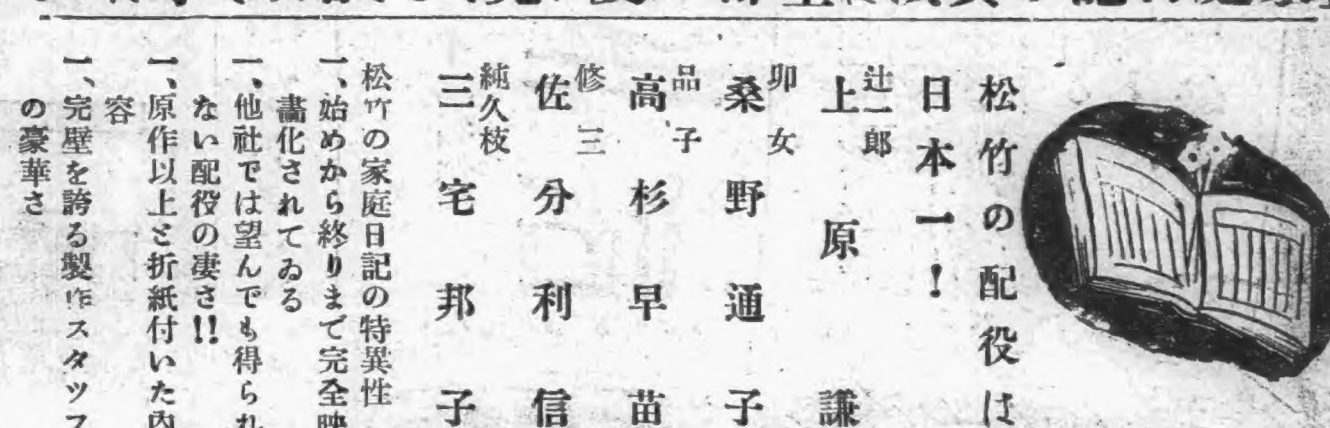 松竹の配役は
日本一!
辻一郎
上原謙
卯女
桑野通子
品子
高杉早苗
修三
佐分利信
純久枝
三宅邦子
松竹の家庭日記の特異性
一、始めから終りまで完全映
畵化されてゐる
一、他社では望んでも得られ
ない配役の凄さ!!
一、原作以上と折紙付いた內
容
一、完壁を誇る製作スタッフ
の豪華さ